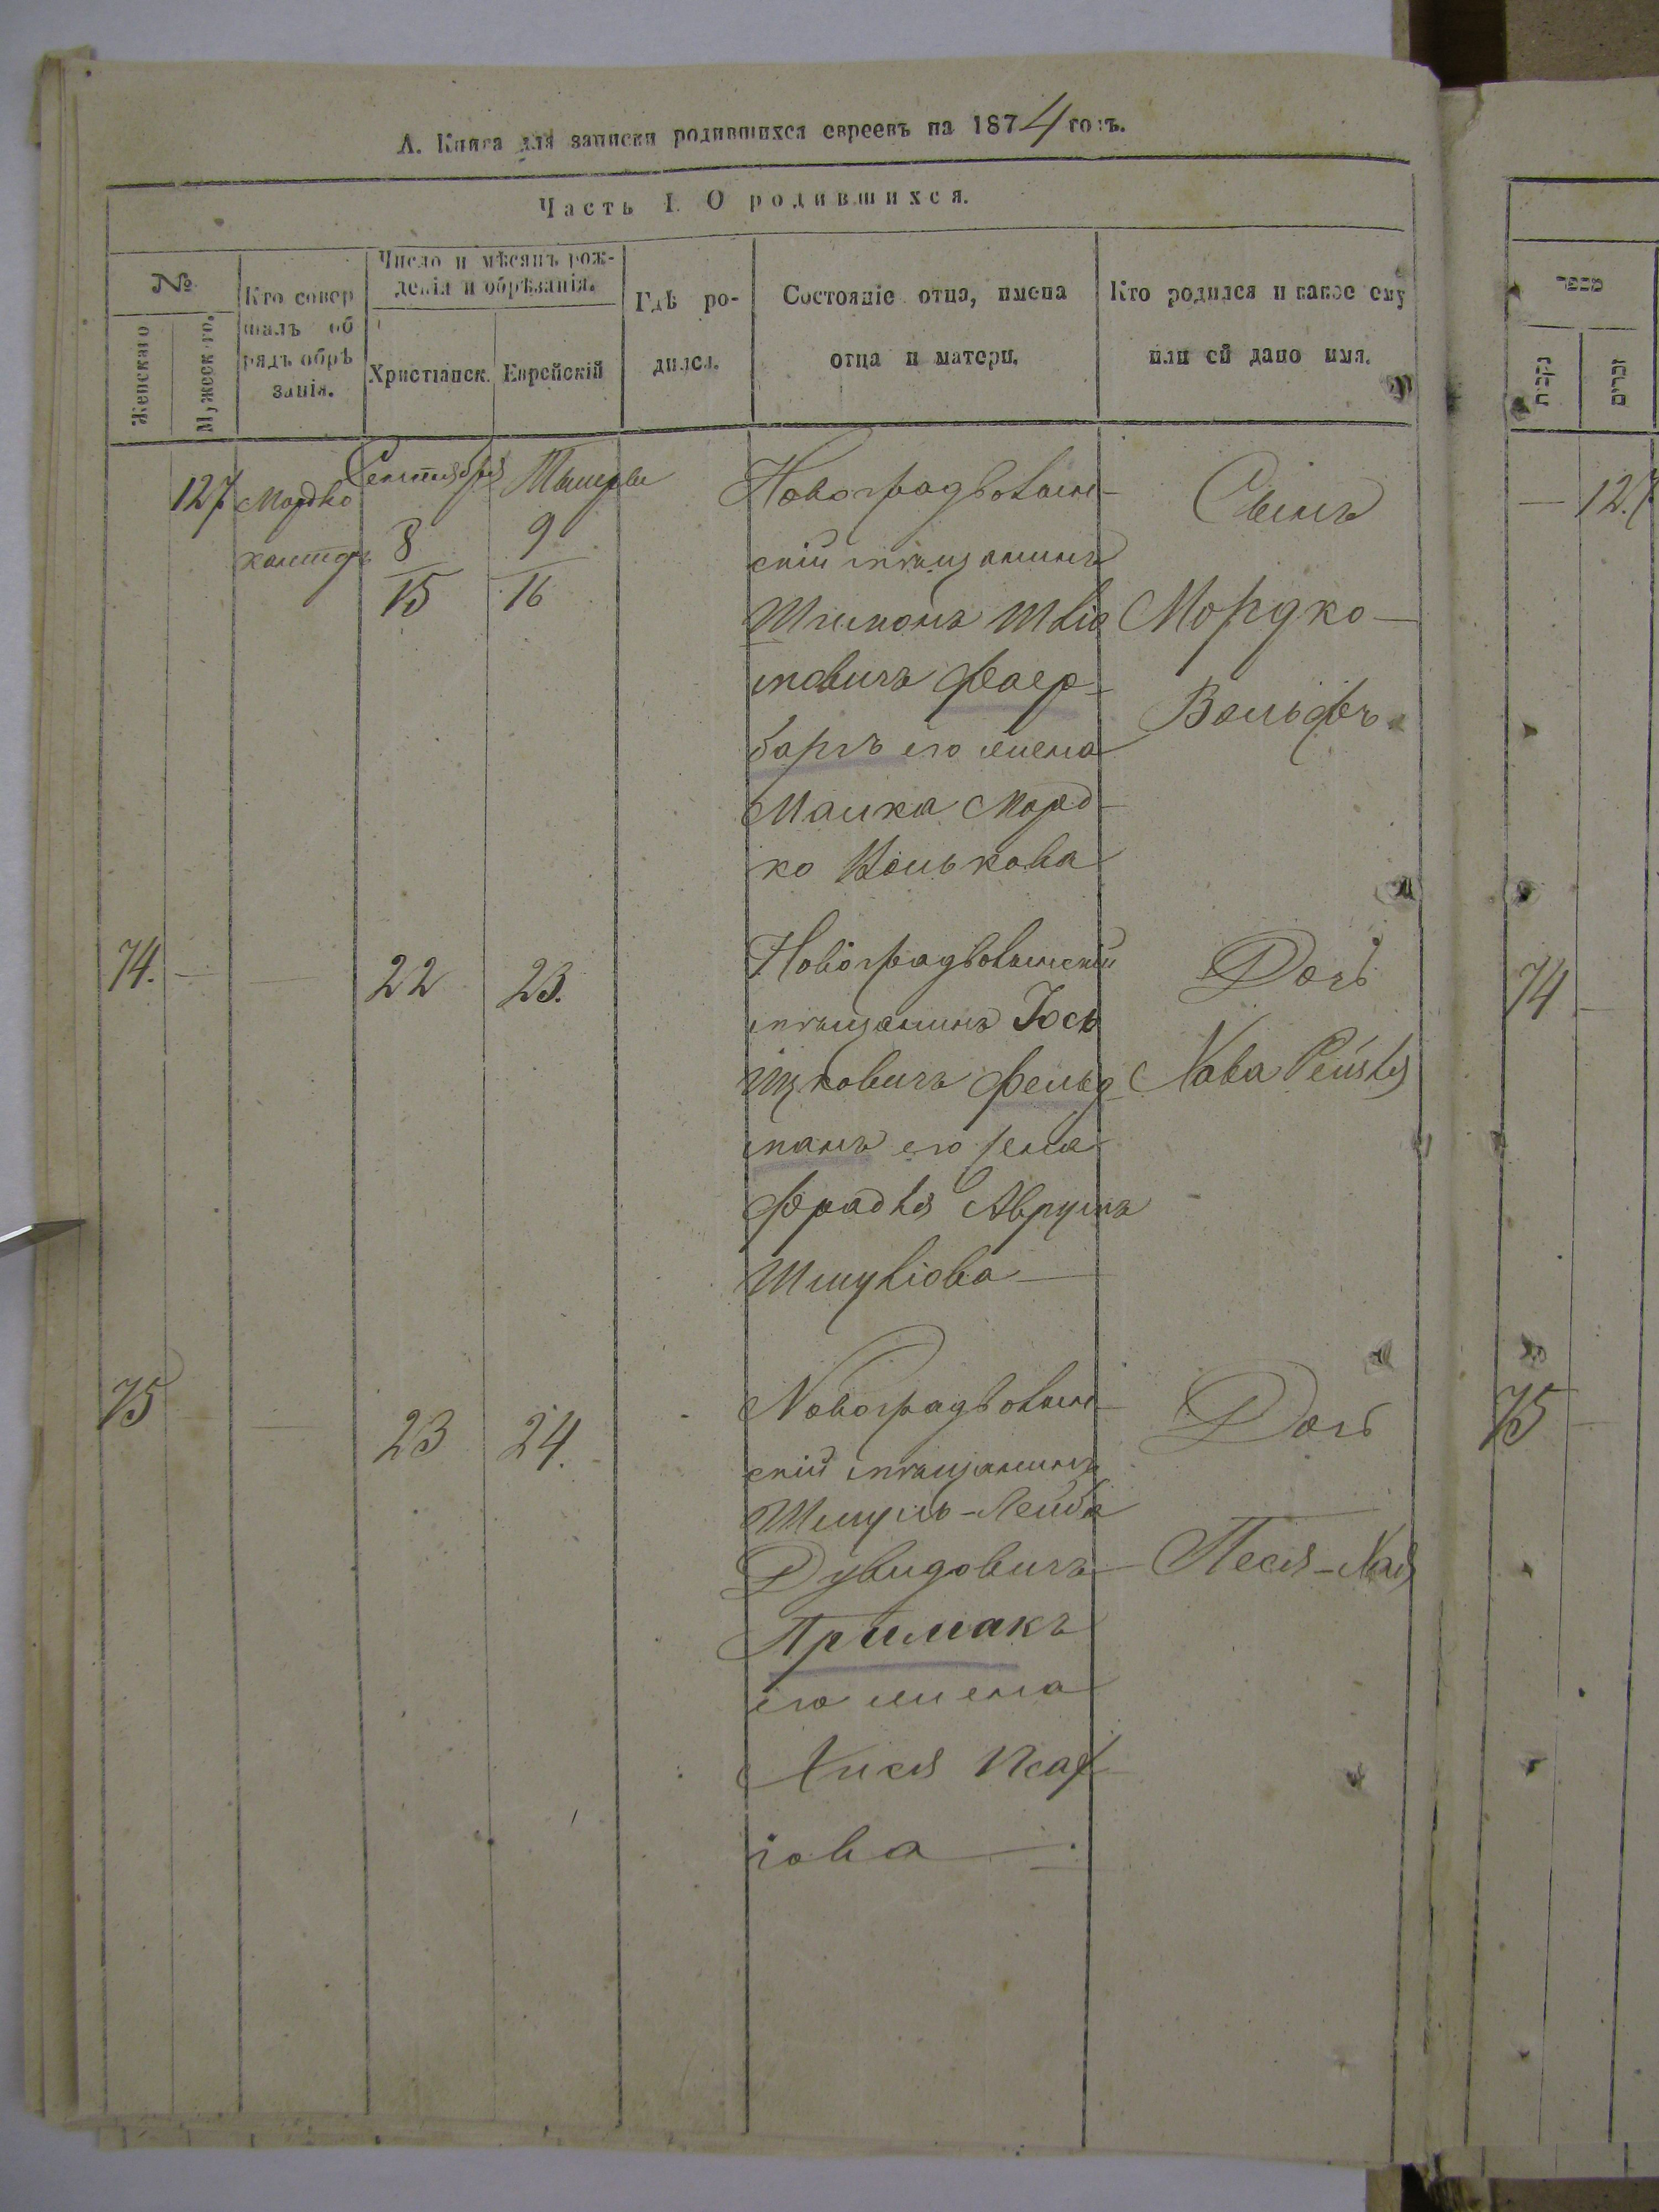 А. Книга для записки родившихся евреевъ на 1874 годъ.
Часть I. О родившихся.
№
Женскаго
Мужескаго.
Кто совер
шалъ об
рядъ обрѣ
занія.
Число и мѣсяцъ рож-
денія и обрѣзанія.
Христіанск.
Еврейскій
Гдѣ ро-
дился.
Состояніе отца, имена
отца и матери.
Кто родился и какое ему
или ей дано имя.
127
Мордко
Сентября
8
15
9
16
Новоградволын-
скій мѣщанинъ
Шлио
мовичъ Фаер-
баргъ его жена
Малка Морд-
коВолькова
Сынъ
Мордко-
Вольфъ.
74.
—
—
22
23.
Новоградволынскій
мѣщанинъ Іось
Ицковичъ Фельд-
манъ его жена
Фрадля Аврумъ
Шмуліова —
Дочь
Хава Рейзля
75
—
23
24.
Новоградволын-
скій мѣщанинъ
Шмуль-Лейба
Дувидовичъ
Примакъ
его жена
Хися
іова —
Дочь
Песя-Хая
מספר
נקבות
זכרים
— 127
74 —
75 —